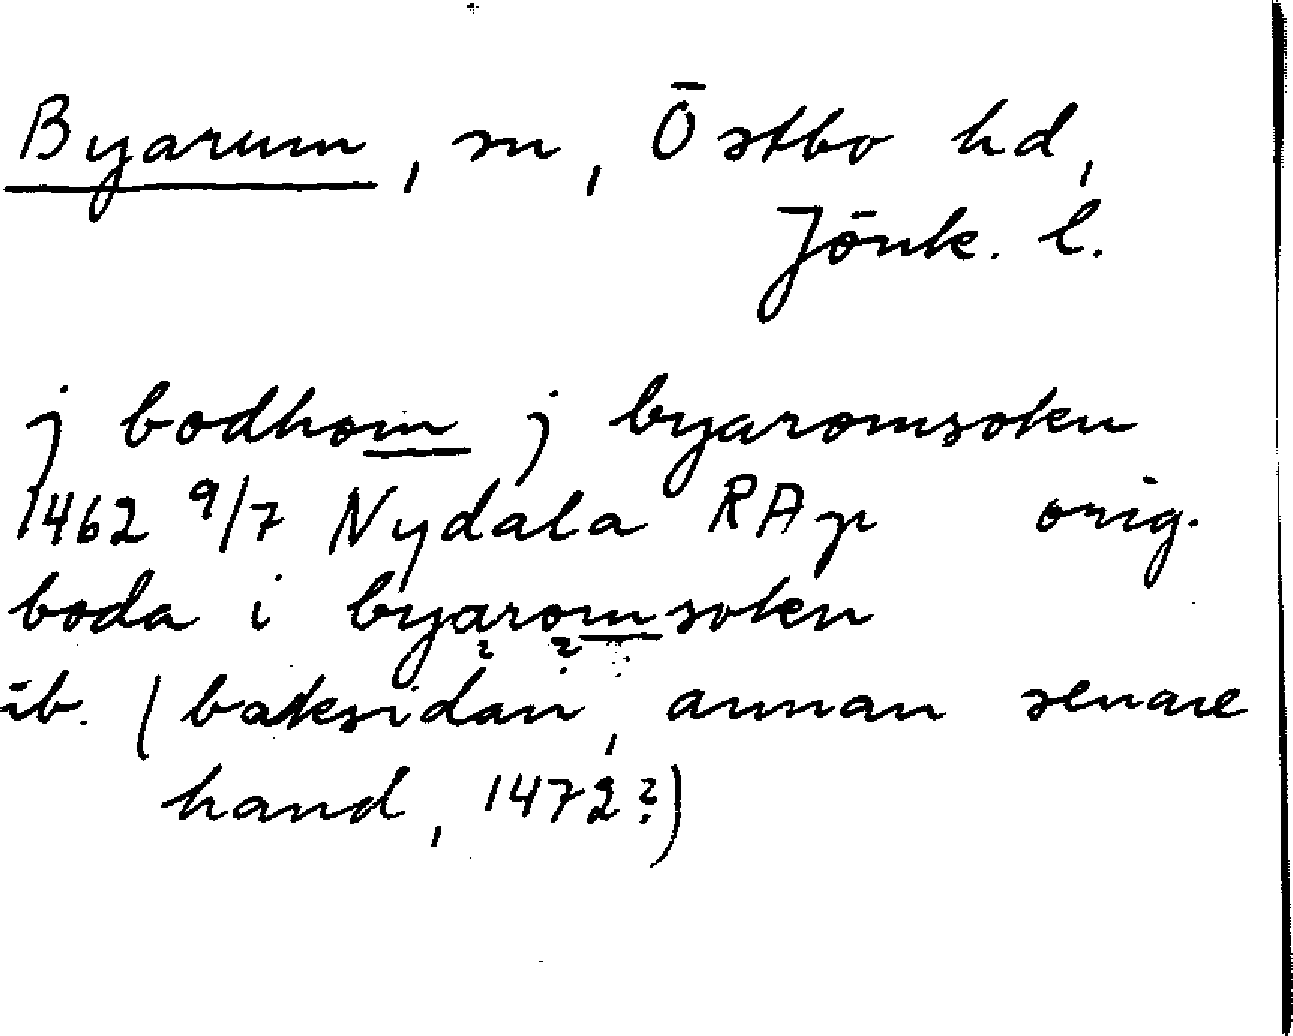 Byarum, sn, Östbo hd,
Jönk. l.
j bodhom j byaromsokn
1462 9/7 Nydala RAp orig.
boda i byaromsokn
ib. (baksidan, annan senare
hand, 1472?)